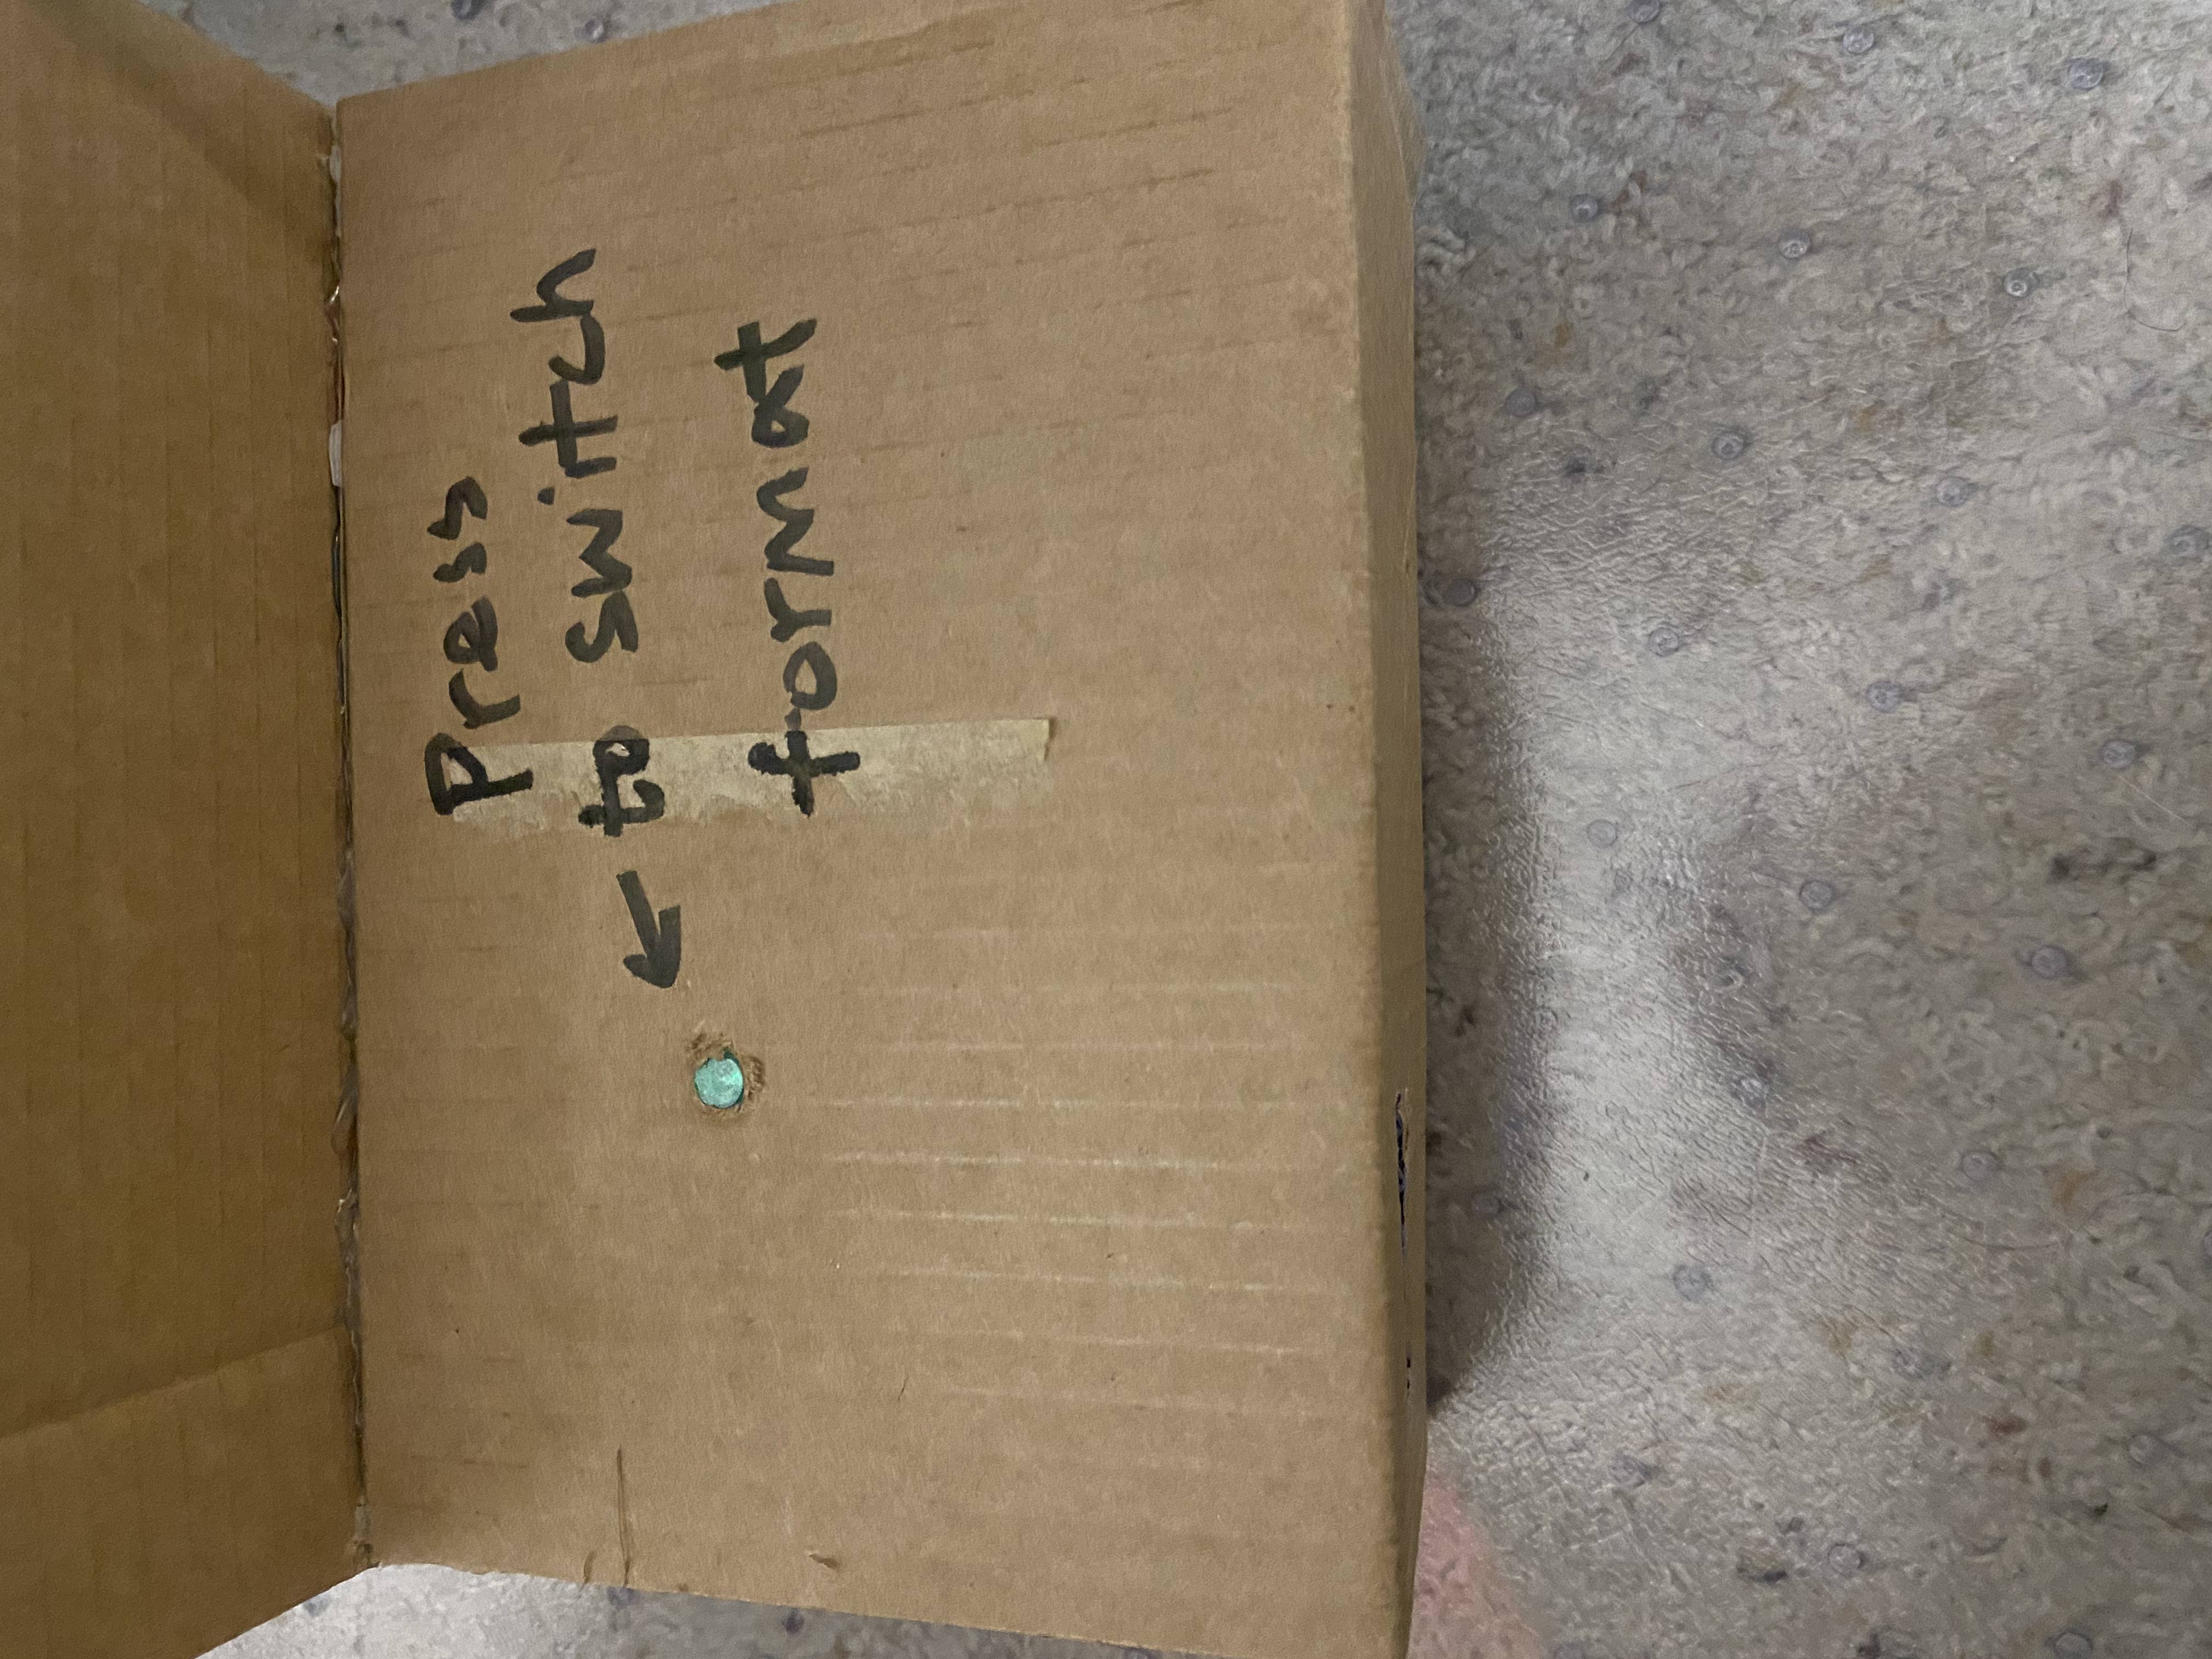 Press
← to switch
format